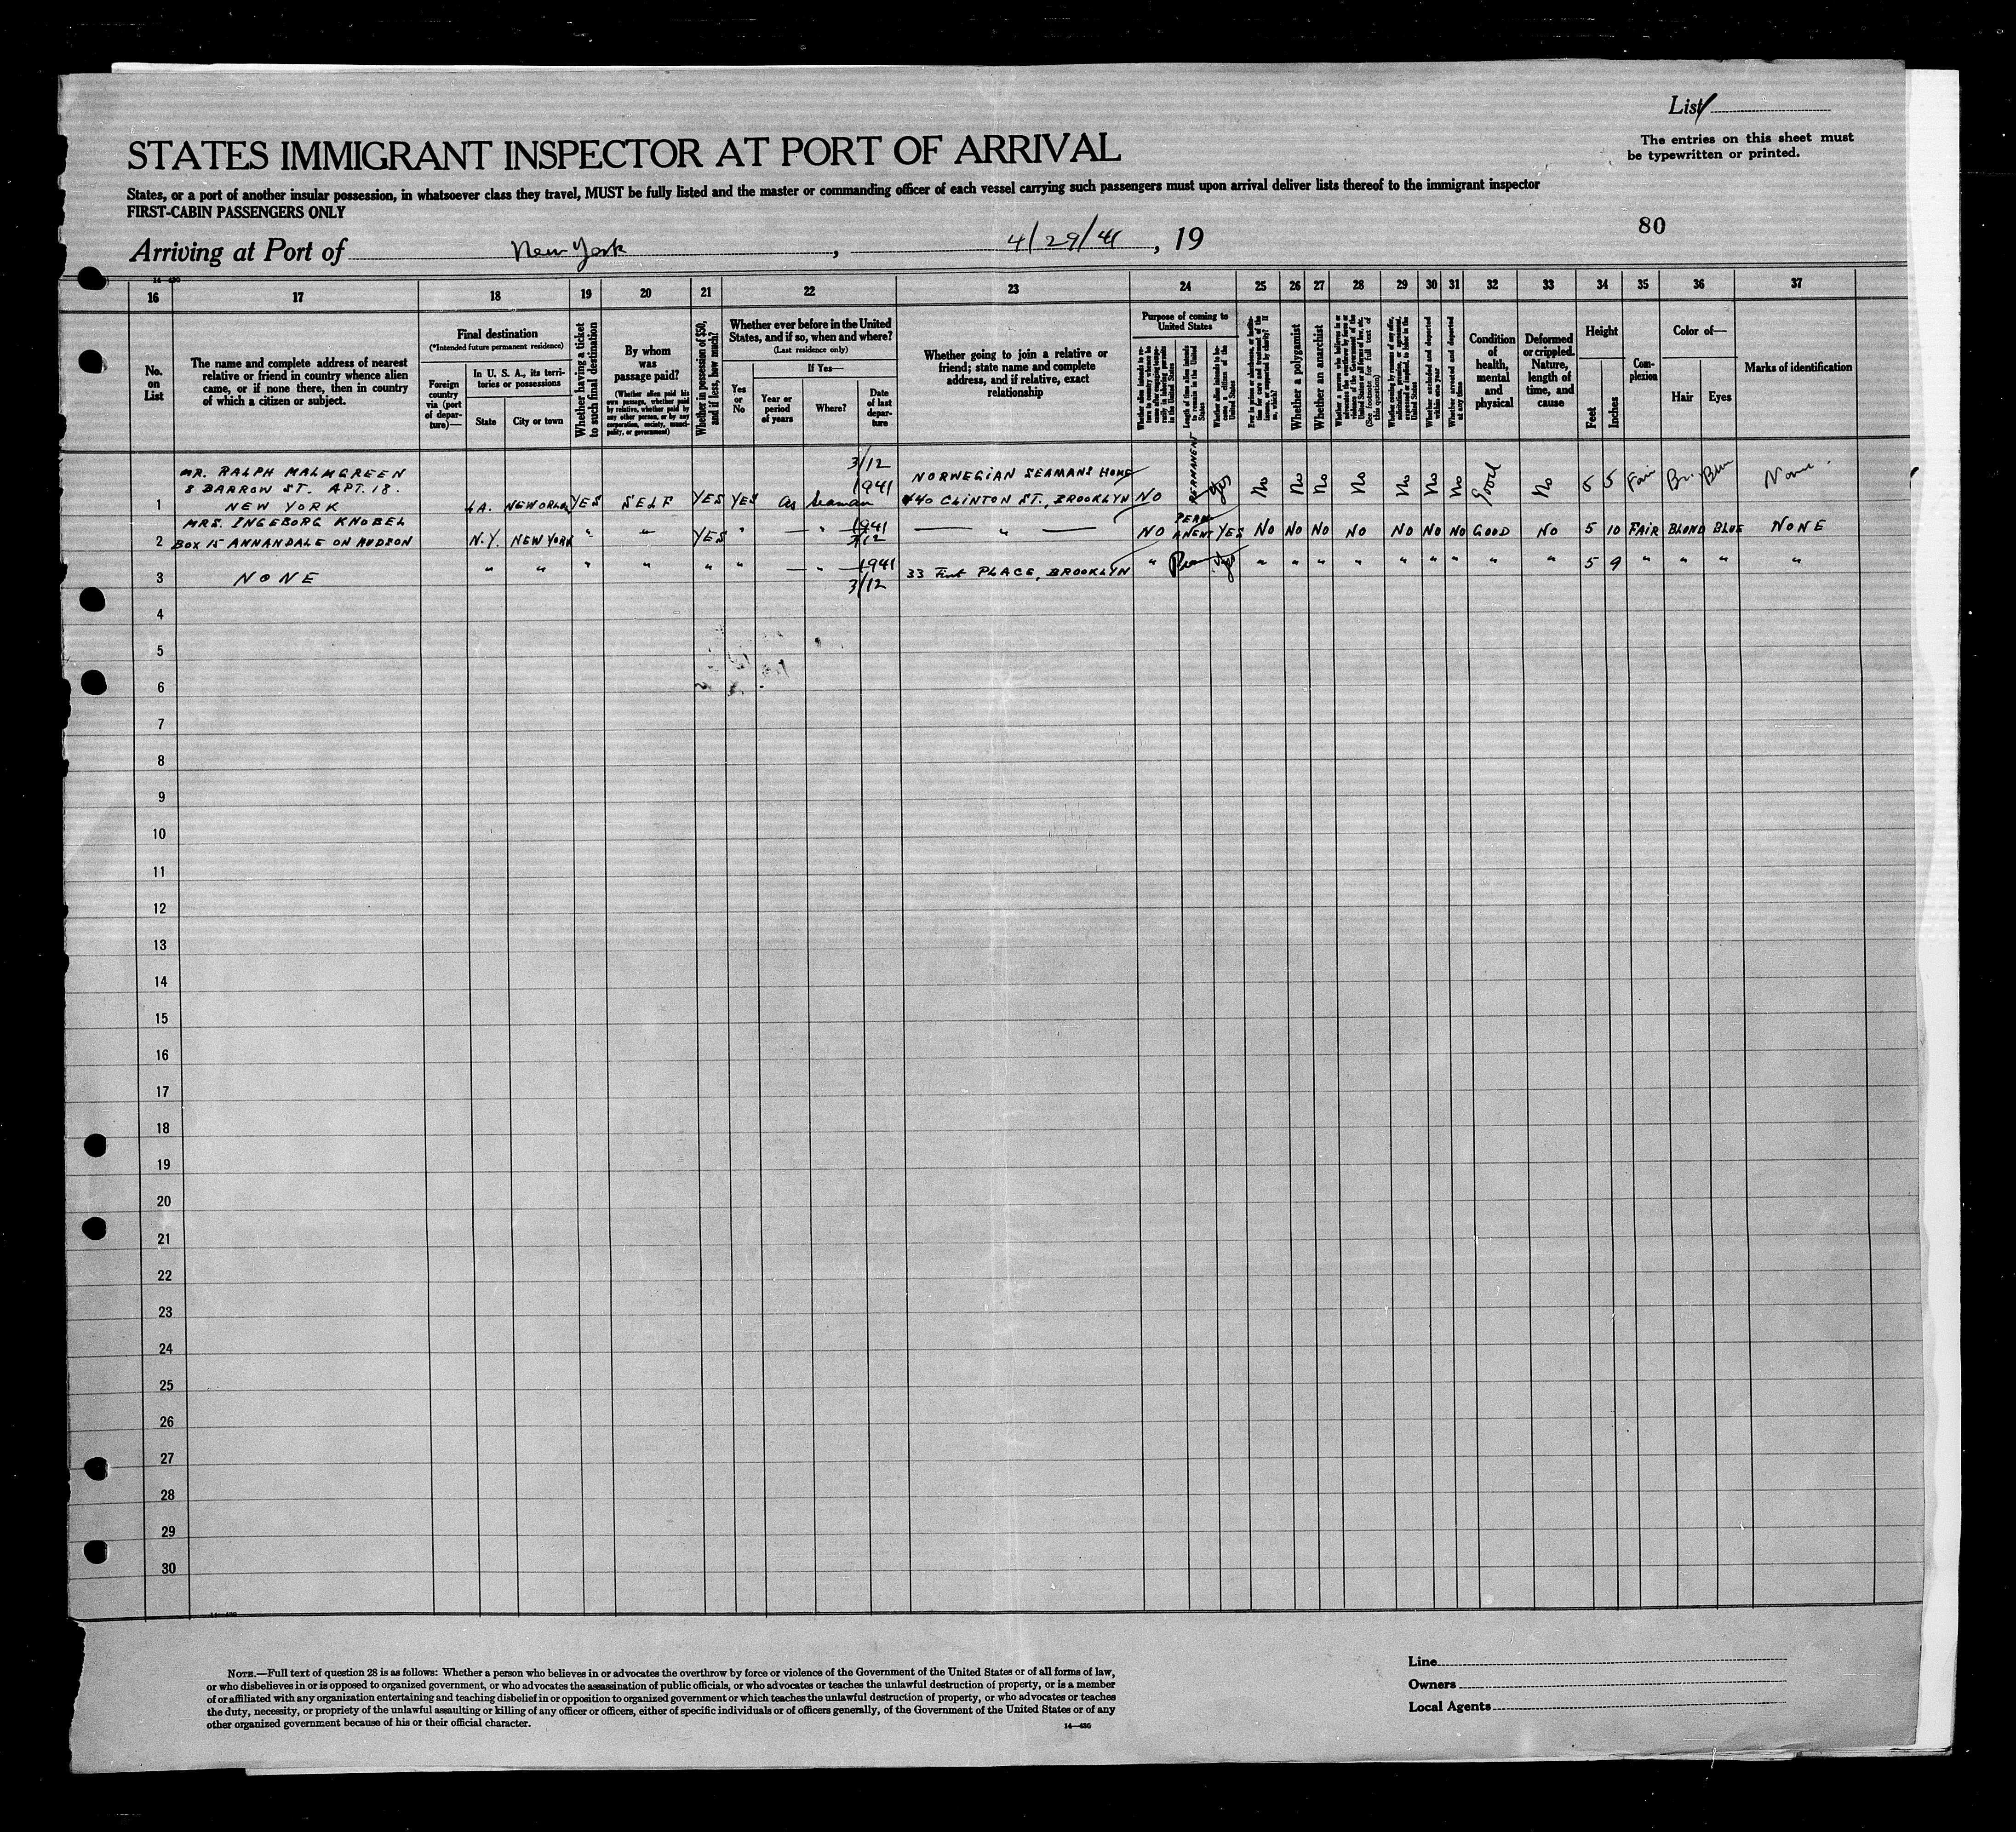 List
The entries on this sheet must
be typewritten or printed.
STATES IMMIGRANT INSPECTOR AT PORT OF ARRIVAL
States, or a port of another insular possession, in whatsoever class they travel, MUST be fully listed and the master or commanding officer of each vessel carrying such passengers must upon arrival deliver lists thereof to the immigrant inspector
FIRST-CABIN PASSENGERS ONLY
80
Arriving at Port of New York, 4/29/41, 19
14—430
16 17 18 19 20 21 22 23 24 25 26 27 28 29 30 31 32 33 34 35 36 37
No. on List
The name and complete address of nearest
relative or friend in country whence alien
came, or if none there, then in country
of which a citizen or subject.
Final destination
(*Intended future permanent residence)
Foreign country via (port of departure)—
In U. S. A., its territories or possessions
State
City or town
Whether having a ticket to such final destination
By whom was passage paid?
(Whether alien paid his own passage, whether paid by relative, whether paid by any other person, or by any corporation, society, municipality, or government)
Whether in possession of $50, and if less, how much?
Whether ever before in the United
States, and if so, when and where?
(Last residence only)
Yes or No
If Yes—
Year or period of years
Where?
Date of last departure
Whether going to join a relative or
friend; state name and complete
address, and if relative, exact
relationship
Purpose of coming to United States
Length of time alien intends to remain in the United States
Whether alien intends to become a citizen of the United States
Whether a polygamist
Whether an anarchist
(See footnote for full text of this question)
Whether arrested and deported at any time
Condition of health, mental and physical
Deformed or crippled. Nature, length of time, and cause
Height
Feet
Inches
Complexion
Color of—
Hair
Eyes
Marks of identification
1 MR. RALPH MALMGREEN
8 BARROW ST. APT. 18.
NEW YORK
LA. YES SELF YES YES as Seaman 3/12 1941
NORWEGIAN SEAMANS HOME
440 CLINTON ST., BROOKLYN
NO PERMANENT Yes No No No No No No No Good No 5 5 Fair Br. Blue None
2 MRS. INGEBORG KNOBEL
BOX 15 ANNANDALE ON HUDSON
N.Y. NEW YORK " " YES " — " — 1941 3/12
— " —
NO PERMANENT YES NO NO NO NO NO NO NO GOOD NO 5 10 FAIR BLOND BLUE NONE
3 NONE
" " " " " " — " — 1941 3/12
33 First PLACE, BROOKLYN
" Perm Yes " " " " " " " " " 5 9 " " " "
4
5
6
7
8
9
10
11
12
13
14
15
16
17
18
19
20
21
22
23
24
25
26
27
28
29
30
NOTE.—Full text of question 28 is as follows: Whether a person who believes in or advocates the overthrow by force or violence of the Government of the United States or of all forms of law,
or who disbelieves in or is opposed to organized government, or who advocates the assassination of public officials, or who advocates or teaches the unlawful destruction of property, or is a member
of or affiliated with any organization entertaining and teaching disbelief in or opposition to organized government or which teaches the unlawful destruction of property, or who advocates or teaches
the duty, necessity, or propriety of the unlawful assaulting or killing of any officer or officers, either of specific individuals or of officers generally, of the Government of the United States or of any
other organized government because of his or their official character.
14—430
Line
Owners
Local Agents